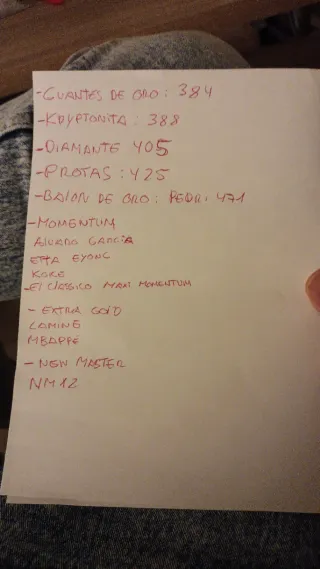 - GUANTES DE ORO: 384
- KRYPTONITA: 388
- DIAMANTE 405
- PROTAS: 425
- BALON DE ORO: PEDRI 471
- MOMENTUM
ALVARO GARCIA
ETTA EYONG
KOKE
- El CLASSICO MAXI MOMENTUM
- EXTRA GOLD
LAMINE
MBAPPÉ
- NEW MASTER
NM12